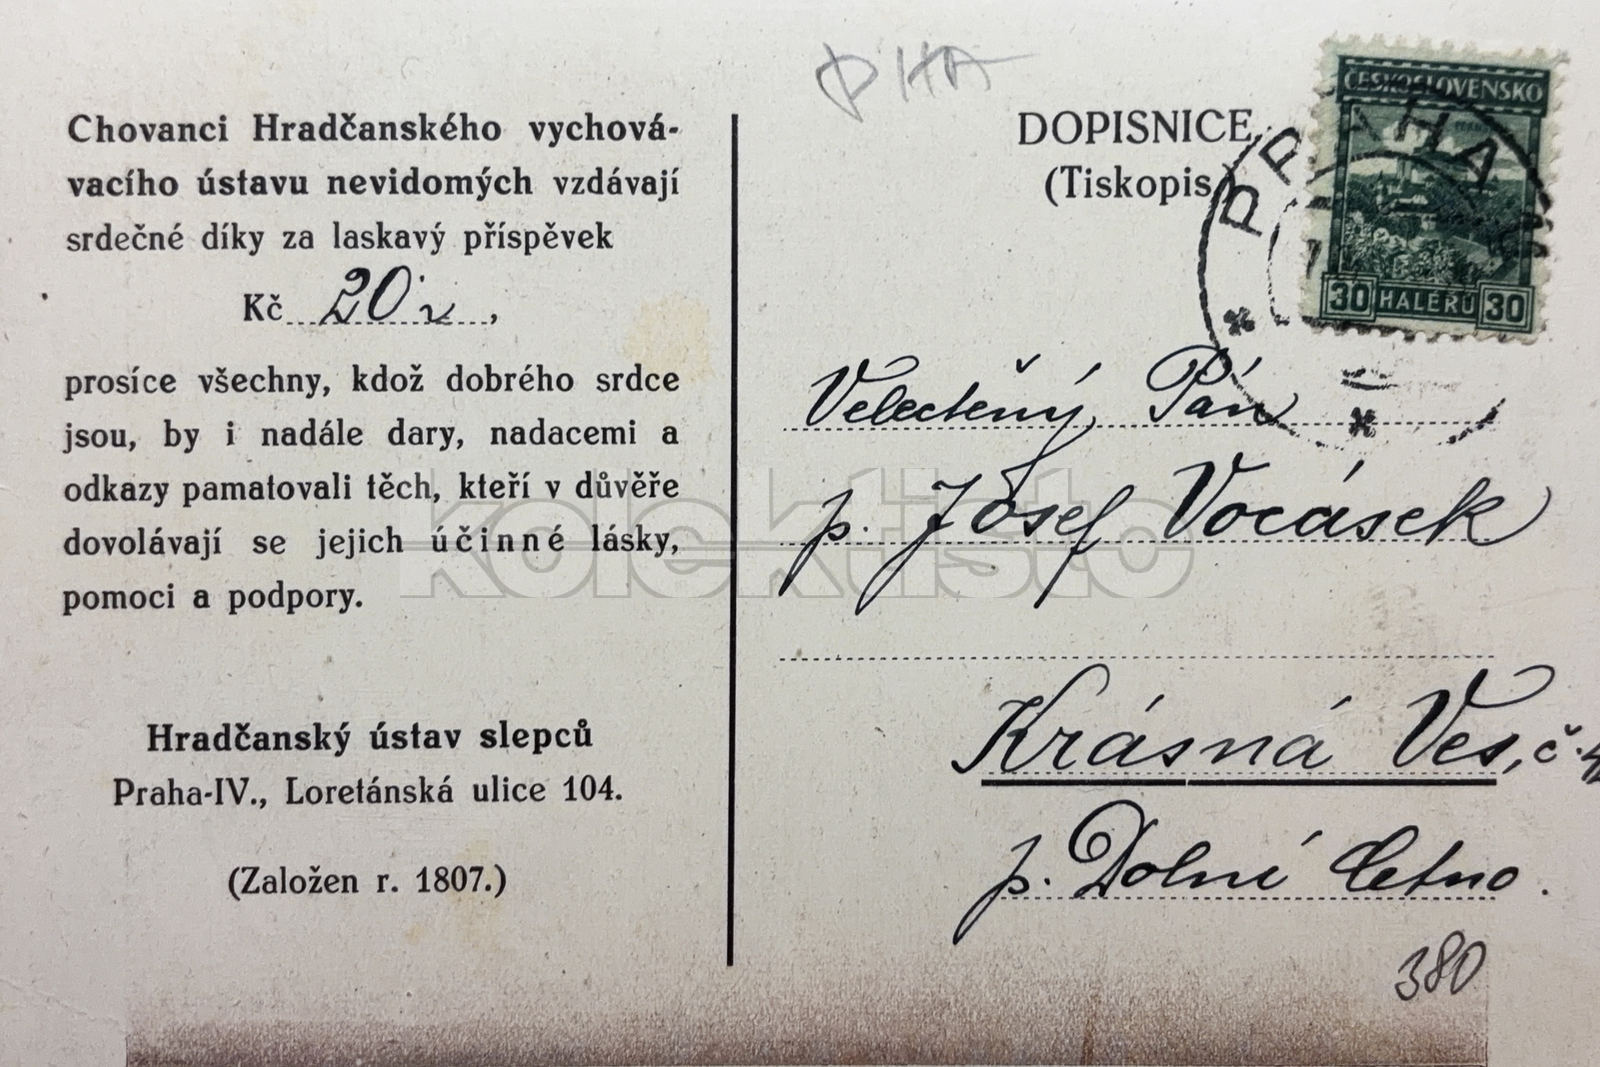 PHA
Chovanci Hradčanského vychová-
vacího ústavu nevidomých vzdávají
srdečné díky za laskavý příspěvek
Kč 20
prosíce všechny, kdož dobrého srdce
jsou, by i nadále dary, nadacemi a
odkazy pamatovali těch, kteří v důvěře
dovolávají se jejich účinné lásky,
pomoci a podpory.
Hradčanský ústav slepců
Praha-IV., Loretánská ulice 104.
(Založen r. 1807.)
DOPISNICE
(Tiskopis)
ČESKOSLOVENSKO
30 HALÉŘŮ 30
PRAHA
Velectěný Pán
p. Josef Vocásek
Krásná Ves, č.
p. Dolní Cetno.
380
kolektisto